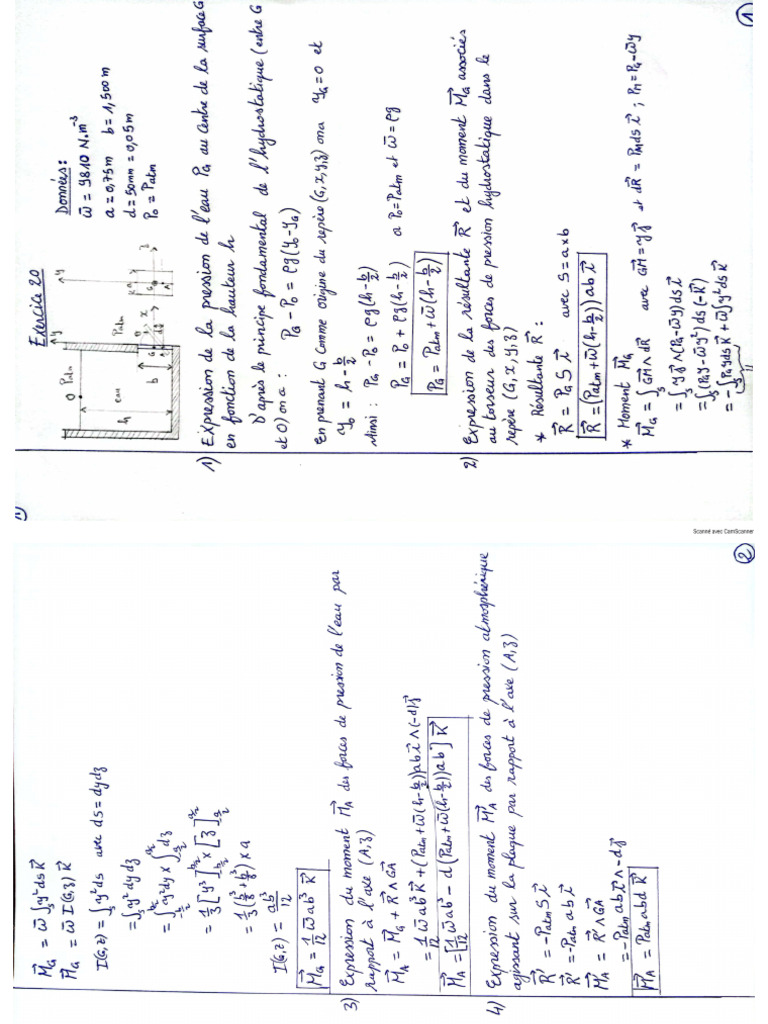 (1)
Exercice 20
Données:
ω̄ = 9810 N.m⁻³
a = 0,75m b = 1,500m
d = 50mm = 0,05m
P₀ = Patm
0 Patm
Patm
eau
h
b
1) Expression de la pression de l'eau P_G au centre de la surface G
en fonction de la hauteur h
D'après le principe fondamental de l'hydrostatique (entre G
et 0) on a : P_G - P₀ = ρg(y₀ - y_G)
En prenant G comme origine du repère (G,x,y,z) on a y_G = 0 et
y₀ = h - b/2
Ainsi : P_G - P₀ = ρg(h - b/2)
P_G = P₀ + ρg(h - b/2) a P₀ = Patm et ω̄ = ρg
P_G = Patm + ω̄(h - b/2)
2) Expression de la résultante R⃗ et du moment M⃗_G associés
au torseur des forces de pression hydrostatique dans le
repère (G,x,y,z)
* Résultante R⃗ :
R⃗ = P_G S i⃗ avec S = a x b
R⃗ = (Patm + ω̄(h - b/2)) ab i⃗
* Moment M⃗_G
M⃗_G = ∫_S GM⃗ ∧ dR⃗ avec GM⃗ = y j⃗ et dR⃗ = P_M ds i⃗ ; P_M = P_G - ω̄y
= ∫_S y j⃗ ∧ (P_G - ω̄y) ds i⃗
= ∫_S (P_G y - ω̄y²) ds (-K⃗)
= -∫_S P_G y ds K⃗ + ω̄∫y² ds K⃗
(1)
Scanné avec CamScanner
M⃗_G = ω̄ ∫_S y² ds K⃗
M⃗_G = ω̄ I(G,z) K⃗
I(G,z) = ∫_S y² ds avec ds = dy dz
= ∫_S y² dy dz
= ∫_{-b/2}^{b/2} y² dy x ∫_{-a/2}^{a/2} dz
= 1/3 [y³]_{-b/2}^{b/2} x [z]_{-a/2}^{a/2}
= 1/3 (b³/8 + b³/8) x a
I(G,z) = ab³/12
M⃗_G = 1/12 ω̄ ab³ K⃗
3) Expression du moment M⃗_A des forces de pression de l'eau par
rapport à l'axe (A,z)
M⃗_A = M⃗_G + R⃗ ∧ GA⃗
= 1/12 ω̄ ab³ K⃗ + (Patm + ω̄(h - b/2)) ab i⃗ ∧ (-d) j⃗
M⃗_A = [1/12 ω̄ ab³ - d (Patm + ω̄(h - b/2)) ab] K⃗
4) Expression du moment M⃗_A des forces de pression atmosphérique
agissant sur la plaque par rapport à l'axe (A,z)
R⃗' = -Patm S i⃗
R⃗' = -Patm ab i⃗
M⃗_A = R⃗' ∧ GA⃗
= -Patm ab i⃗ ∧ -d j⃗
M⃗_A = Patm abd K⃗
(2)